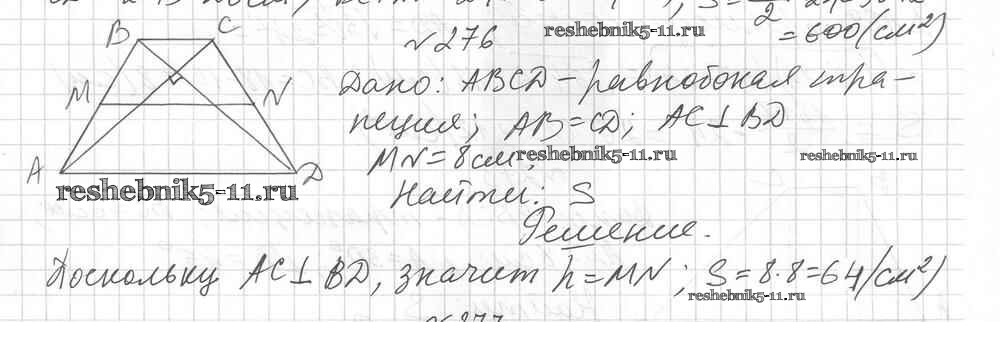 = 600 (см²)
B C
№ 276 reshebnik5-11.ru
Дано: ABCD – равнобокая тра-
M N
пеция; AB = CD; AC ⊥ BD
MN = 8 см; reshebnik5-11.ru reshebnik5-11.ru
A D
reshebnik5-11.ru
Найти: S
Решение.
Поскольку AC ⊥ BD, значит h = MN; S = 8·8 = 64 (см²)
reshebnik5-11.ru